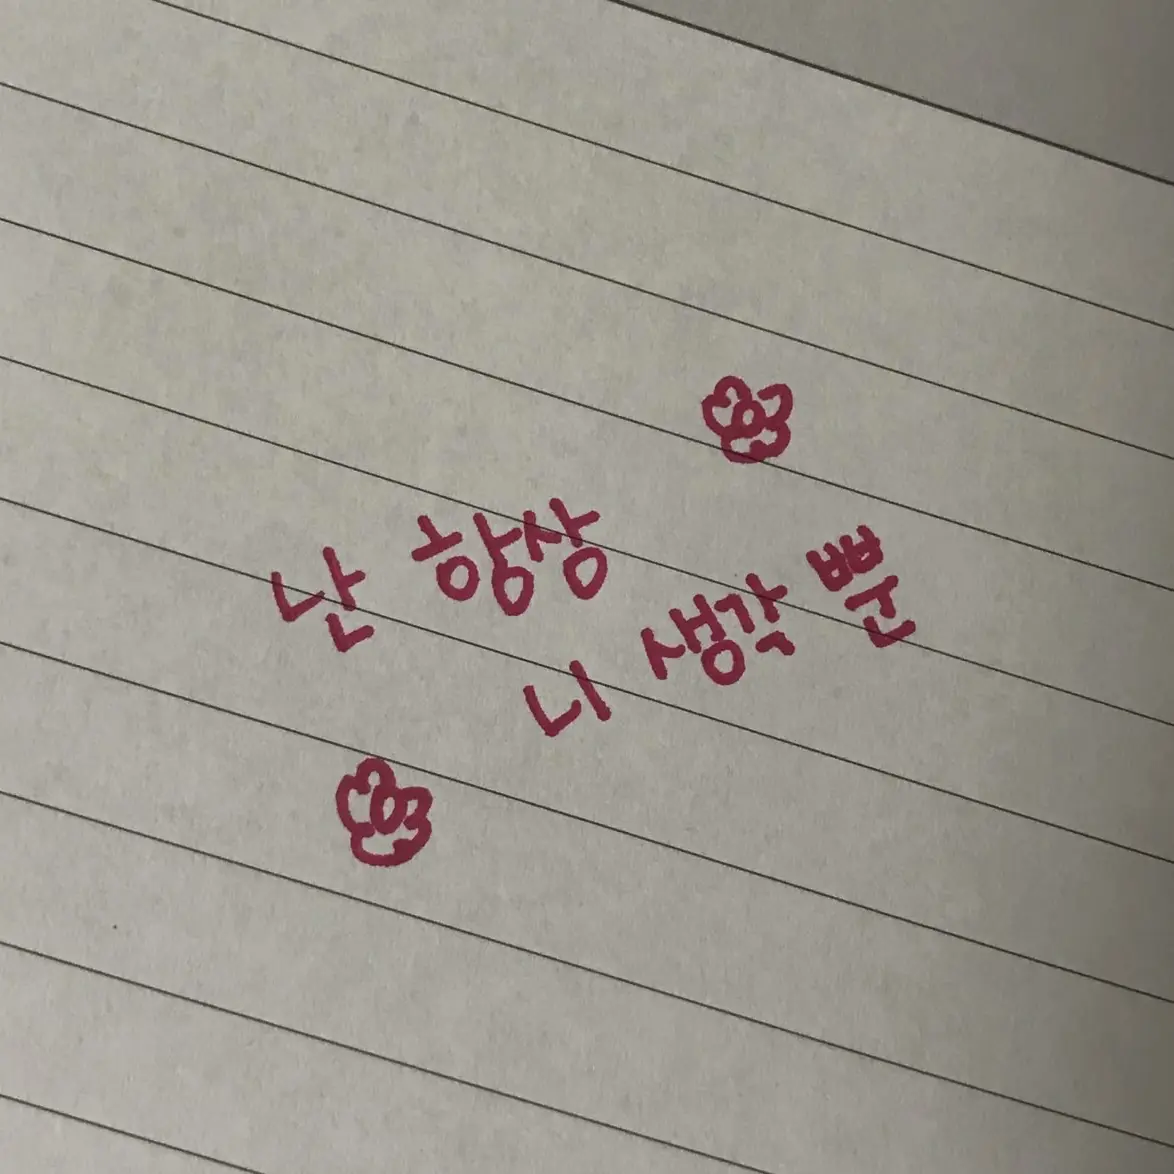 난 항상
니 생각 뿐